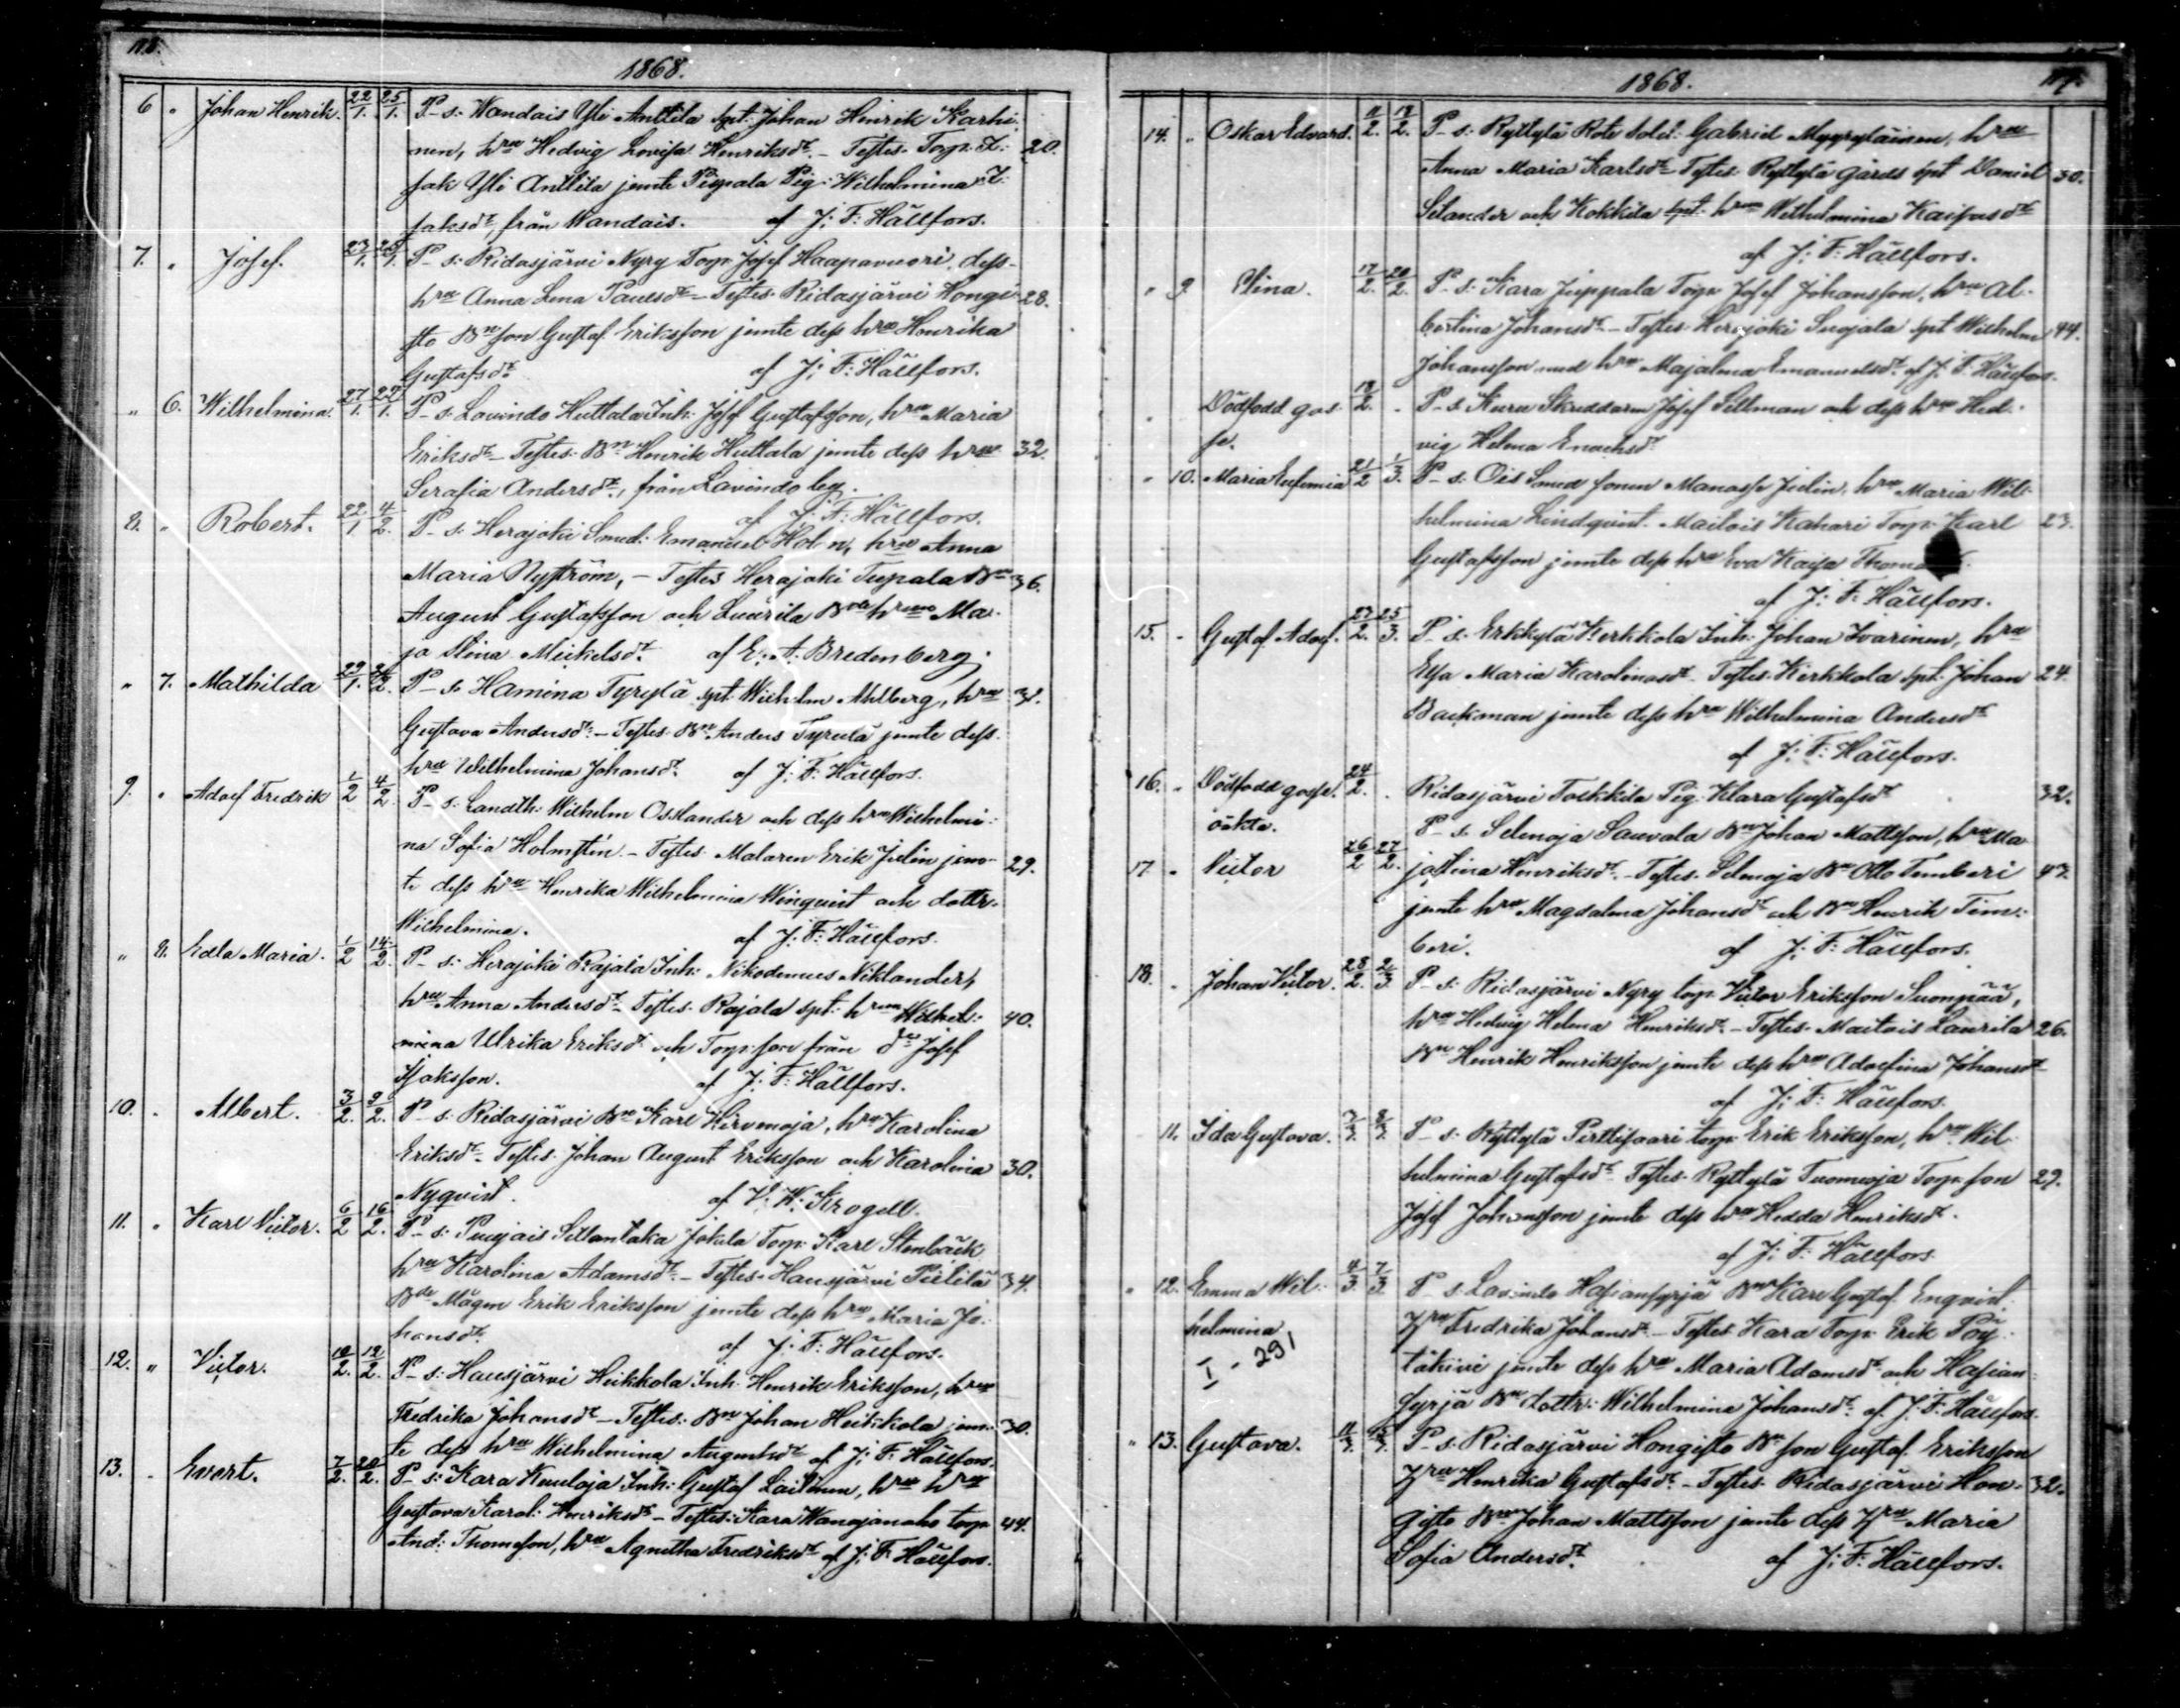 118.
1868.
6 " Johan Henrik. 22/1. 25/1. P-s: Wandais Yli Anttila spt: Johan Henrik Karhi-
nen, hru Hedvig Lovisa Henriksdr. - Testes: Torp: I- 20.
sak Yli Anttila jemte Pispala Pig: Wilhelmina I-
saksdr, från Wandais. af J: F: Hällfors.
7. " Josef. 23/1. P-s: Ridasjärvi Nyry Torp: Josef Haapavuori, dess
hru Anna Lena Paulsdr - Testes: Ridasjärvi Hongi- 28.
sto Bn son Gustaf Eriksson jemte dess hru Henrika
Gustafsdr. af J: F: Hällfors.
" 6. Wilhelmina. 27/1. P-s. Lavindo Huttala Inh: Josef Gustafsson, hru Maria
Eriksdr - Testes: Bn Henrik Huttala jemte dess hru 32.
Serafia Andersdr, från Lavindo by.
af J: F: Hällfors.
8. " Robert. 22/1 4/2. P-s. Herajoki Smed: Emanuel Hol n, hru Anna
Maria Nyström, - Testes Herajoki Tupala Bn 36.
August Gustafsson och Luurila hru Ma-
ja Stina Mickelsdr. af E: A: Bredenberg.
" 7. Mathilda 29/1. P-s. Hamina Tyrylä spt: Wilhelm Ahlberg, hru
Gustava Andersdr. - Testes: Bn Anders Tyrylä jemte dess
hru Wilhelmina Johansdr. af J: F: Hällfors.
9. " Adolf Fredrik 1/2 4/2. P-s. Landth: Wilhelm Osslander och dess hru Wilhelmi-
na Sofia Holmstén. - Testes: Malaren Erik Julin jem- 29.
te dess hru Henrika Wilhelmina Winquist och dottr.
Wilhelmina. af J: F: Hällfors.
" 8. Edla Maria. 1/2 14/2. P-s: Herajoki Rajala Inh: Nikodemus Niklander,
hru Anna Andersdr - Testes: Rajala spt: hru Wilhel- 40.
mina Ulrika Eriksdr och Torp: son från do Josef
Isaksson. af J: F: Hällfors.
10. " Albert. 3/2. 9/2. P-s. Ridasjärvi Bn Karl Hirvenoja, hru Karolina
Eriksdr. Testes: Johan August Eriksson och Karolina 30.
Nyqvist. af V: W: Krogell.
11. " Karl Victor. 6/2 16/2. P-s: Puujais Sillantaka Jokela Torp: Karl Stenbäck
hru Karolina Adamsdr. - Testes: Hausjärvi Pietilä 34.
Bde Mågen Erik Eriksson jemte dess hru Maria Jo-
hansdr. af J: F: Hällfors.
12. " Victor. 10/2. 12/2. P-s: Hausjärvi Heikkola Inh. Henrik Eriksson, hru
Fredrika Johansdr - Testes: Bn Johan Heikkola jem- 30.
te dess hru Wilhelmina Augustsdr af J: F: Hällfors.
13. " Evert. 7/2. 20/2. P-s: Kara Kuuloja Inh: Gustaf Lailinen, hru hru
Gustava Karol: Henriksdr - Testes: Kara Wanajanaho torp 44.
And: Thomsson, hru Agnetha Fredriksdr af J: F: Hällfors.
1868.
119.
14. " Oskar Edvard. 11/2. 12/2. P-s: Ryttylä Rote Sold: Gabriel Myyryläinen, hru
Anna Maria Karlsdr - Testes: Ryttylä gårds spt Daniel 30.
Selander och Kokkila spt: hru Wilhelmina Kaipasdr
af J: F: Hällfors.
" 9. Elina. 17/2. 20/2. P-s: Kara Juppala Torp: Josef Johansson, hru Al-
bertina Johansdr - Testes: Herajoki Suojala spt Wilhelm 44.
Johansson med hru Majalena Emanuelsdr af J: F: Hällfors.
" Dödfödd gos- 18/2. " P-s: Kuru Skräddaren Josef Sellman och dess hru Hed-
se. vig Helena Enochsdr
" 10. Maria Eufemia 21/2 1/3. P-s. Ois Smed sonen Manasse Julin, hru Maria Wil-
helmina Lindqvist. Maitois Kahari Torp: Karl 23.
Gustafsson jemte dess hru Eva Kaisa Thoma
af J: F: Hällfors.
15. " Gustaf Adolf. 23/2. 25/3. P-s. Erkkylä Kerkkola Inh: Johan Ivarinen, hru
Elsa Maria Karolinasdr - Testes: Kerkkola spt: Johan 24.
Backman jemte dess hru Wilhelmina Andersdr
af J: F: Hällfors.
16. " Dödfödd gosse. 24/2. " Ridasjärvi Torkkila Pig: Klara Gustafsdr 32.
oäkta.
P-s. Selenoja Sauvala Bn Johan Mattsson, hru Ma-
17. " Victor 26/2 27/2. jastina Henriksdr. - Testes: Selenoja Bn Otto Temberi 43.
jemte hru Magdalena Johansdr och Bn Henrik Tim-
beri. af J: F: Hällfors.
18. " Johan Victor. 28/2. 2/3. P-s: Ridasjärvi Nyry torp: Victor Eriksson Suonpää,
hru Hedvig Helena Henriksdr. - Testes: Maitois Laurila 26.
Bn Henrik Henriksson jemte dess hru Adolfina Johansdr
af J: F: Hällfors.
11. Ida Gustava. 7/3. 8/3. P-s: Ryttylä Perttisaari torp: Erik Eriksson, hru Wil-
helmina Gustafsdr - Testes: Ryttylä Tuomioja Torp: son 29.
Josef Johansson jemte dess hru Hedda Henriksdr.
af J: F: Hällfors.
" 12. Emma Wil- 4/3 7/3 P-s. Lavindo Hasiansyrjä Bn Karl Gustaf Enqvist
helmina Hru Fredrika Johansdr. - Testes: Kara Torp: Erik Pöy-
I - 291 täkivi jemte dess hru Maria Adamsdr och Hasian-
syrjä Bn dottr: Wilhelmina Johansdr. af J: F: Hällfors.
" 13. Gustava. 11/3. 15/3. P-s: Ridasjärvi Hongisto Bn son Gustaf Eriksson
Hru Henrika Gustafsdr. - Testes: Ridasjärvi Hon- 32.
gisto Bn Johan Mattsson jemte dess Hru Maria
Sofia Andersdr. af J: F: Hällfors.